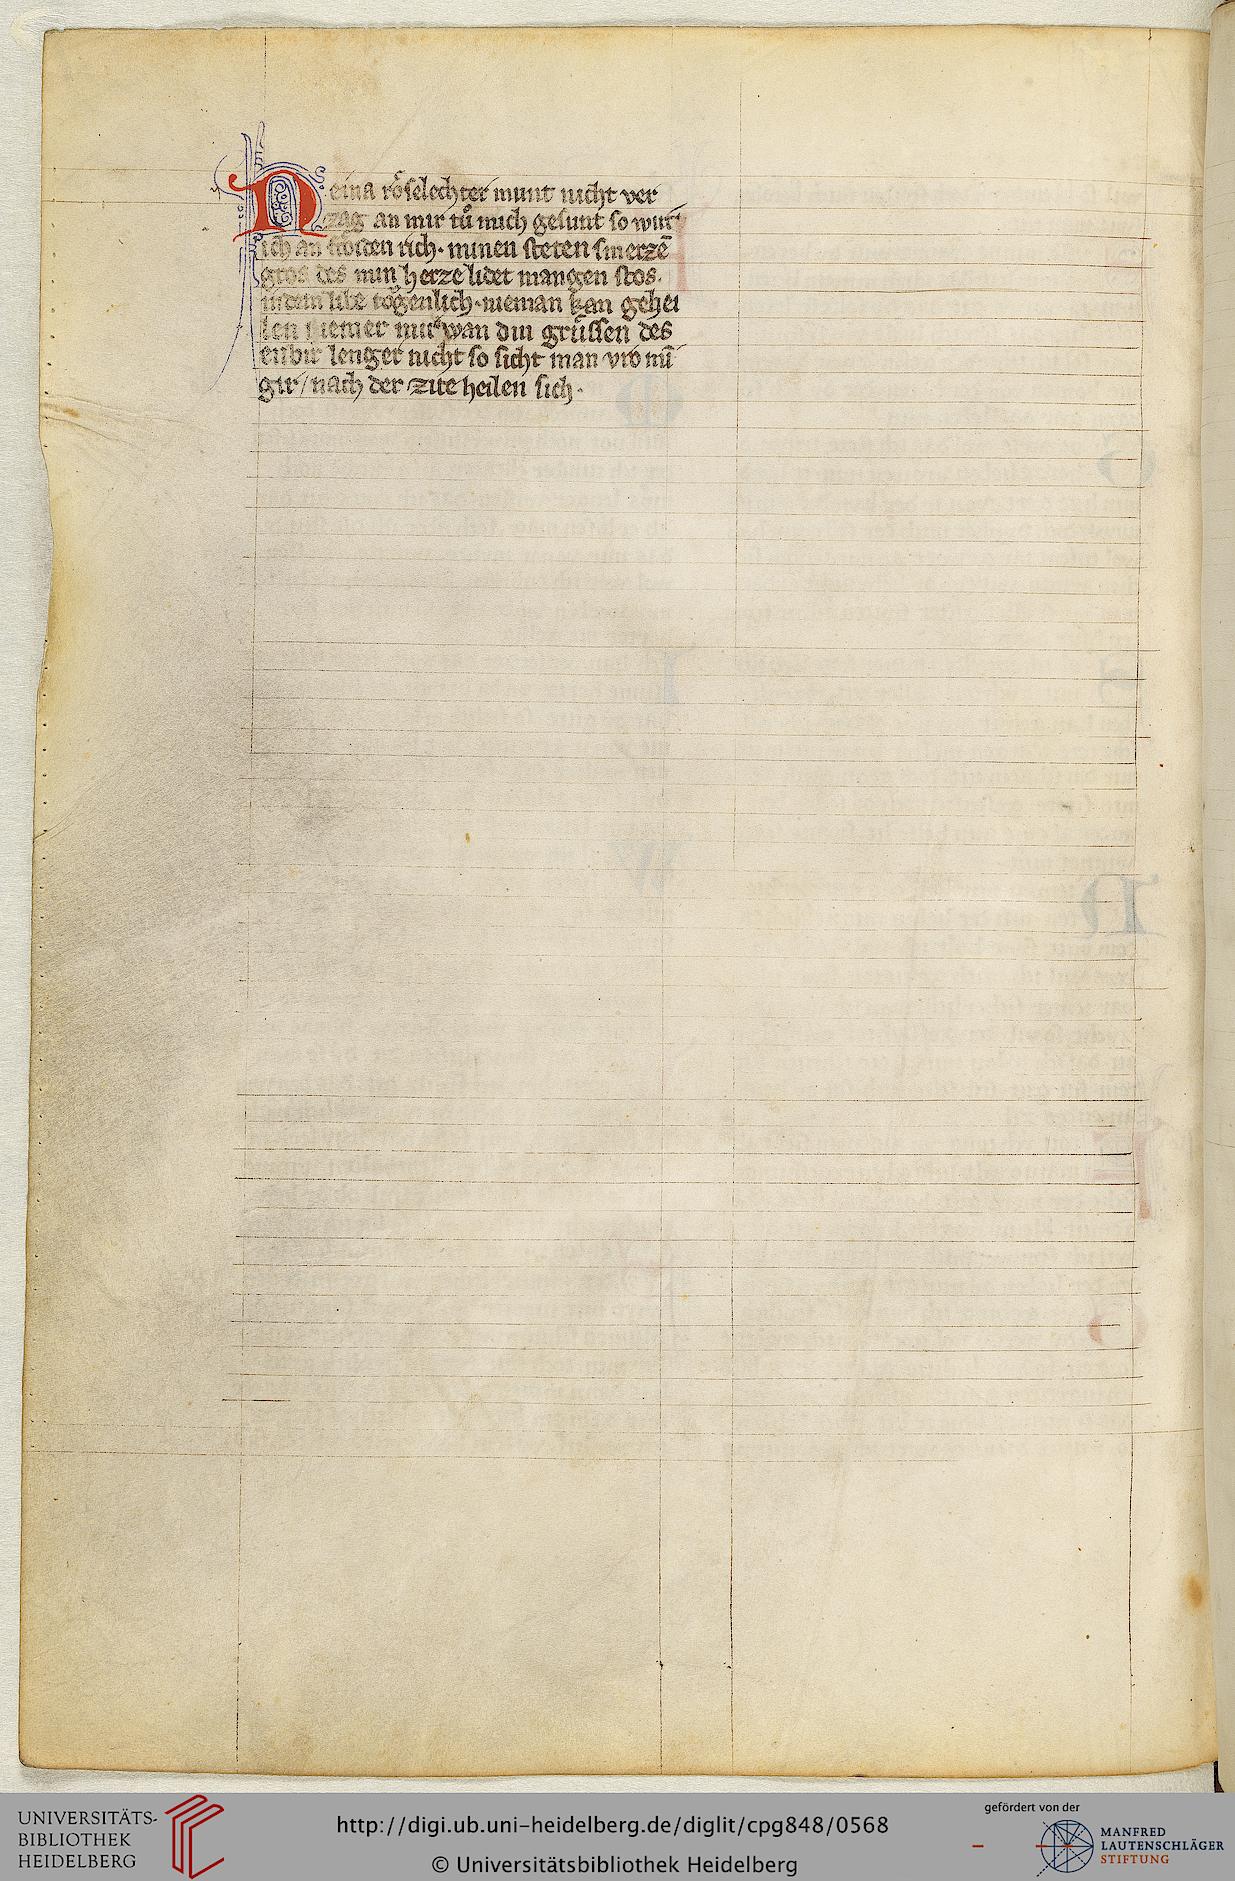 Neina röselechter munt nicht ver
zag an mir tuͦ mich gesunt so wurt
ich an froͤiden rich· minen steten smerzē
gros des min herze lidet mangen stos.
in dem libe toͮgenlich·nieman kan gehei
len niemer mir wan din gruͤssen des
enbir lenger nicht so sicht man vro mī
gir/nach der zite heilen sich·
UNIVERSITÄTS-
BIBLIOTHEK
HEIDELBERG
http://digi.ub.uni-heidelberg.de/diglit/cpg848/0568
© Universitätsbibliothek Heidelberg
gefördert von der
MANFRED
LAUTENSCHLÄGER
STIFTUNG